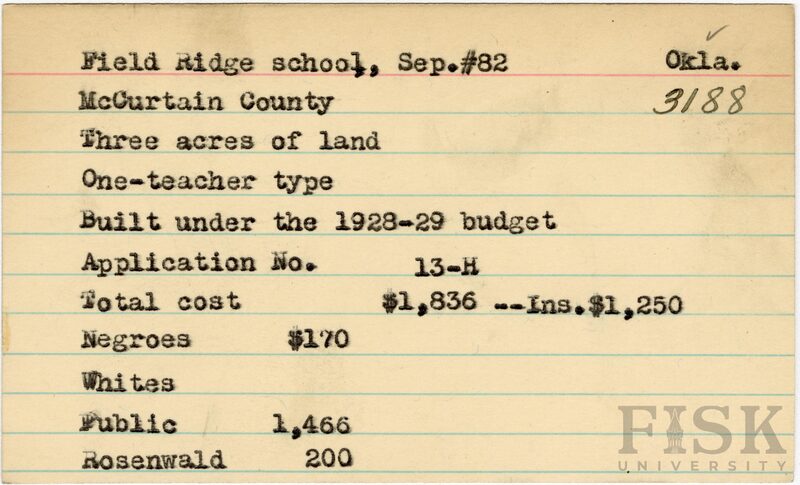 Field Ridge school, Sep.#82 Okla.
McCurtain County 3188
Three acres of land
One-teacher type
Built under the 1928-29 budget
Application No. 13-H
Total cost $1,836 --Ins.$1,250
Negroes $170
Whites
Public 1,466
Rosenwald 200
FISK
UNIVERSITY